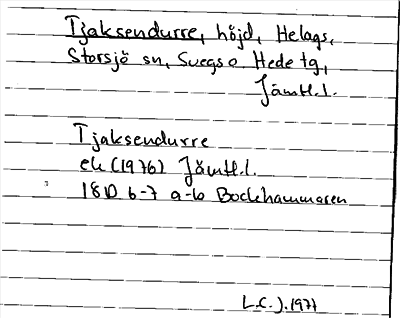 Tjaksendurre, höjd, Helags,
Storsjö sn, Svegs o Hede tg,
Jämtl.l.
Tjaksendurre
ek (1976) Jämtl.l.
18D 6-7 a-b Bockhammaren
L.C.J. 1977